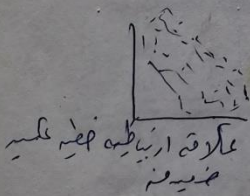 علاقة ارتباطية خطية عكسية
ضعيفة